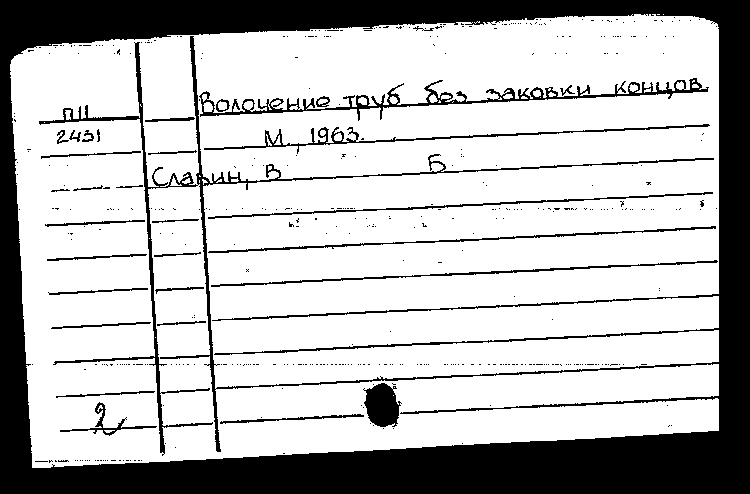 Волочение труб без заковки концов.
П11
2431 М., 1963.
Славин, В Б
2